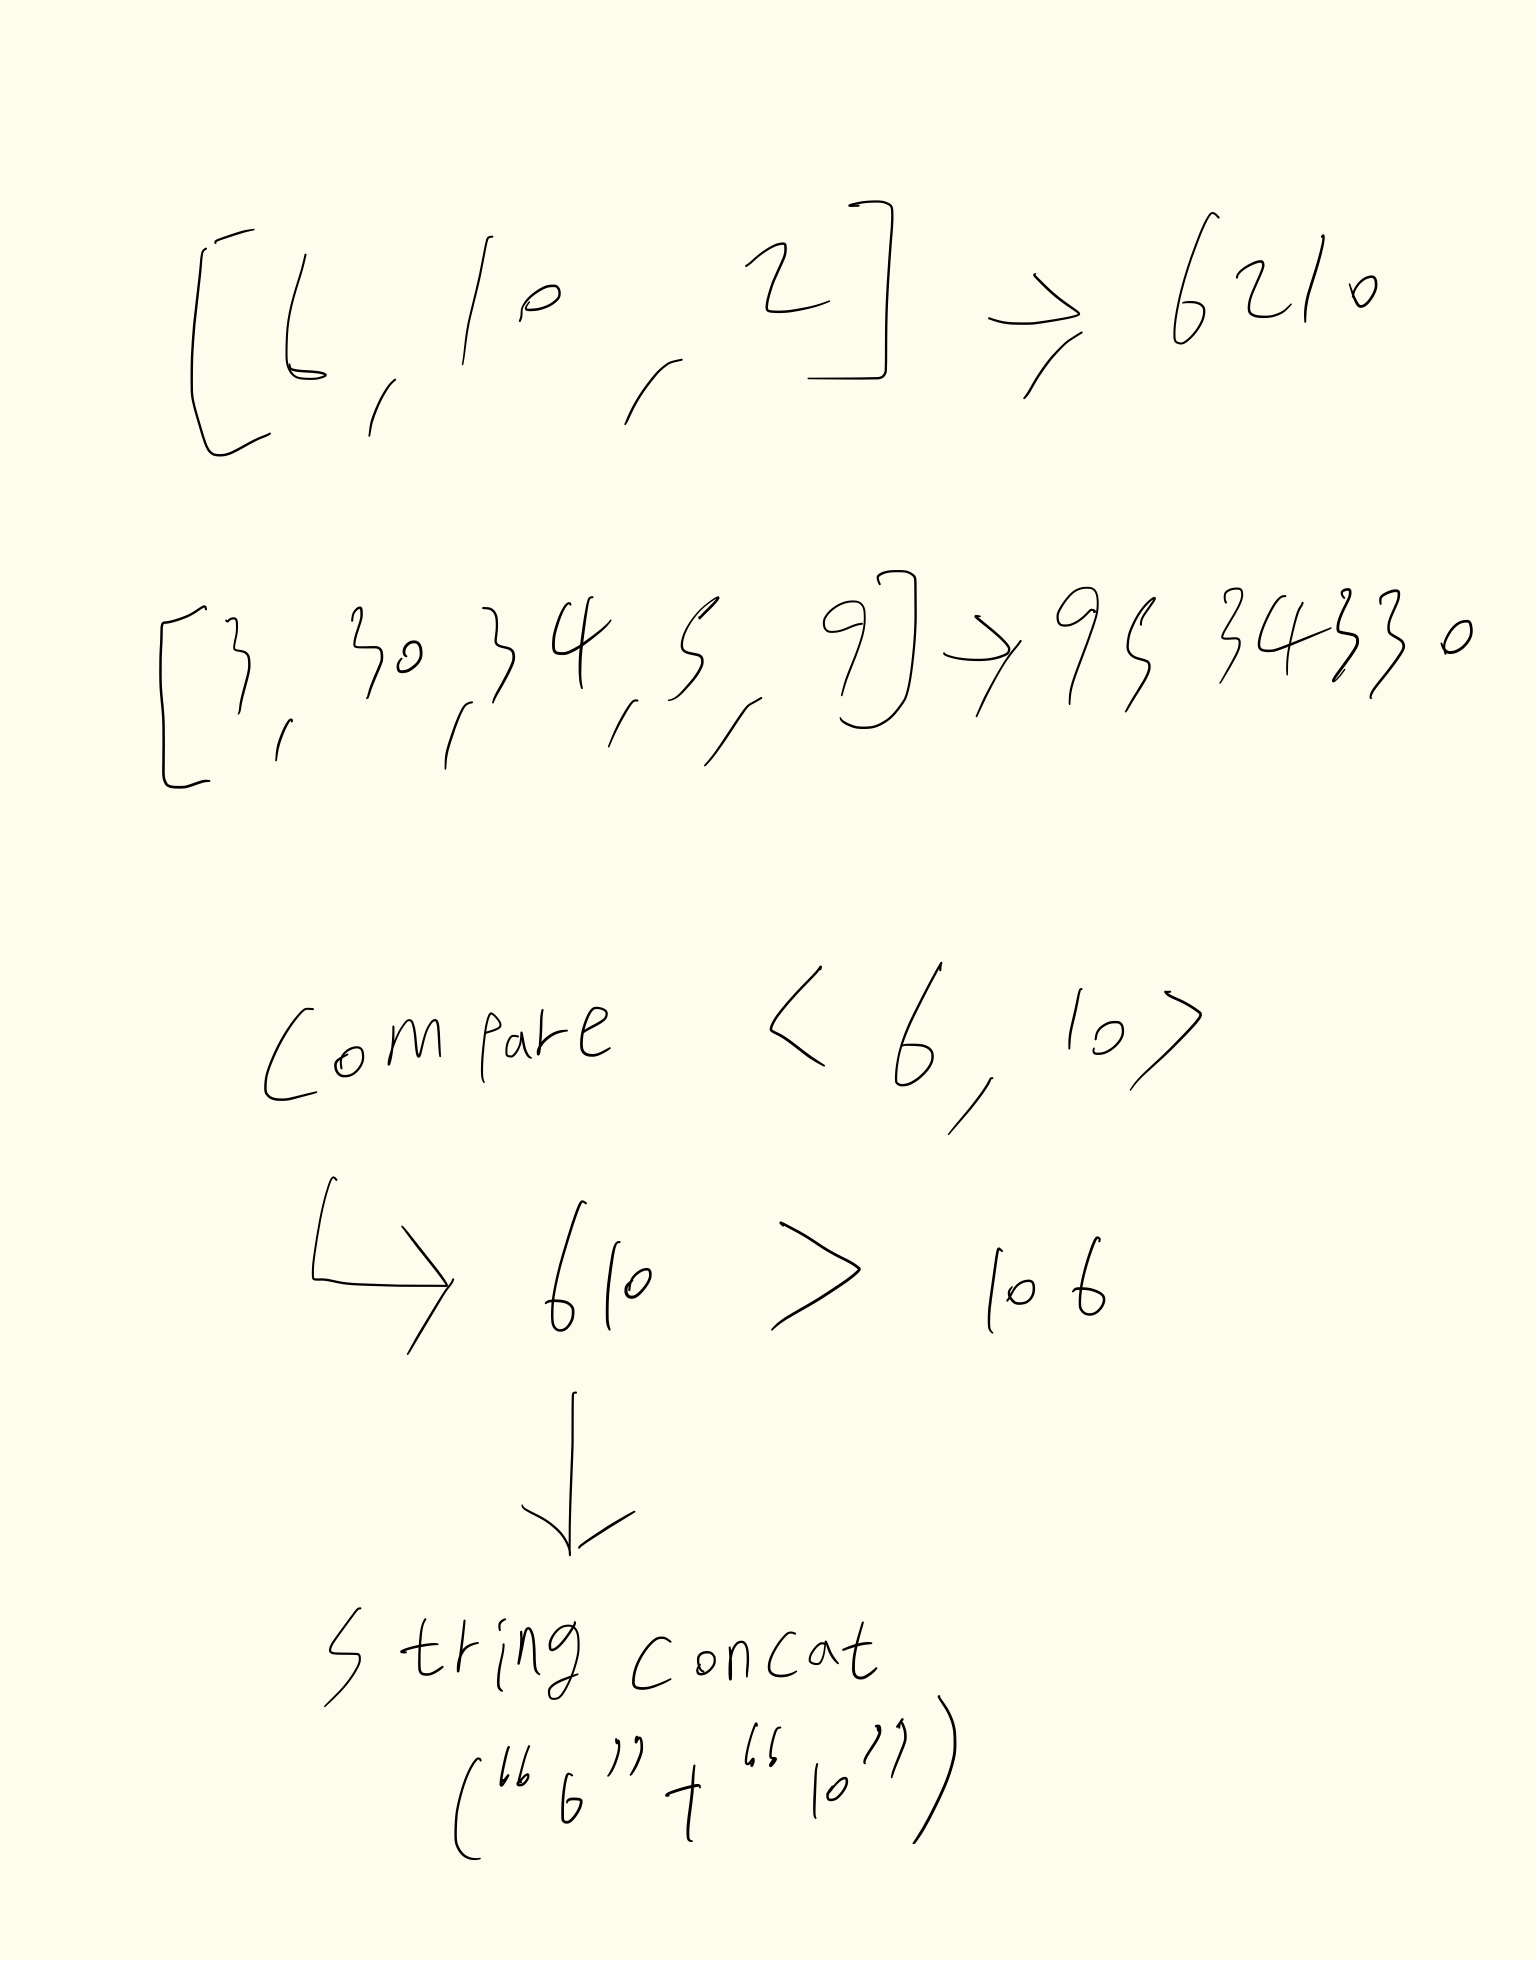 [6, 10, 2] → 6210
[3, 30, 34, 5, 9] → 9534330
Compare < 6, 10>
↳ 610 > 106
↓
String concat
(“6” + “10”)